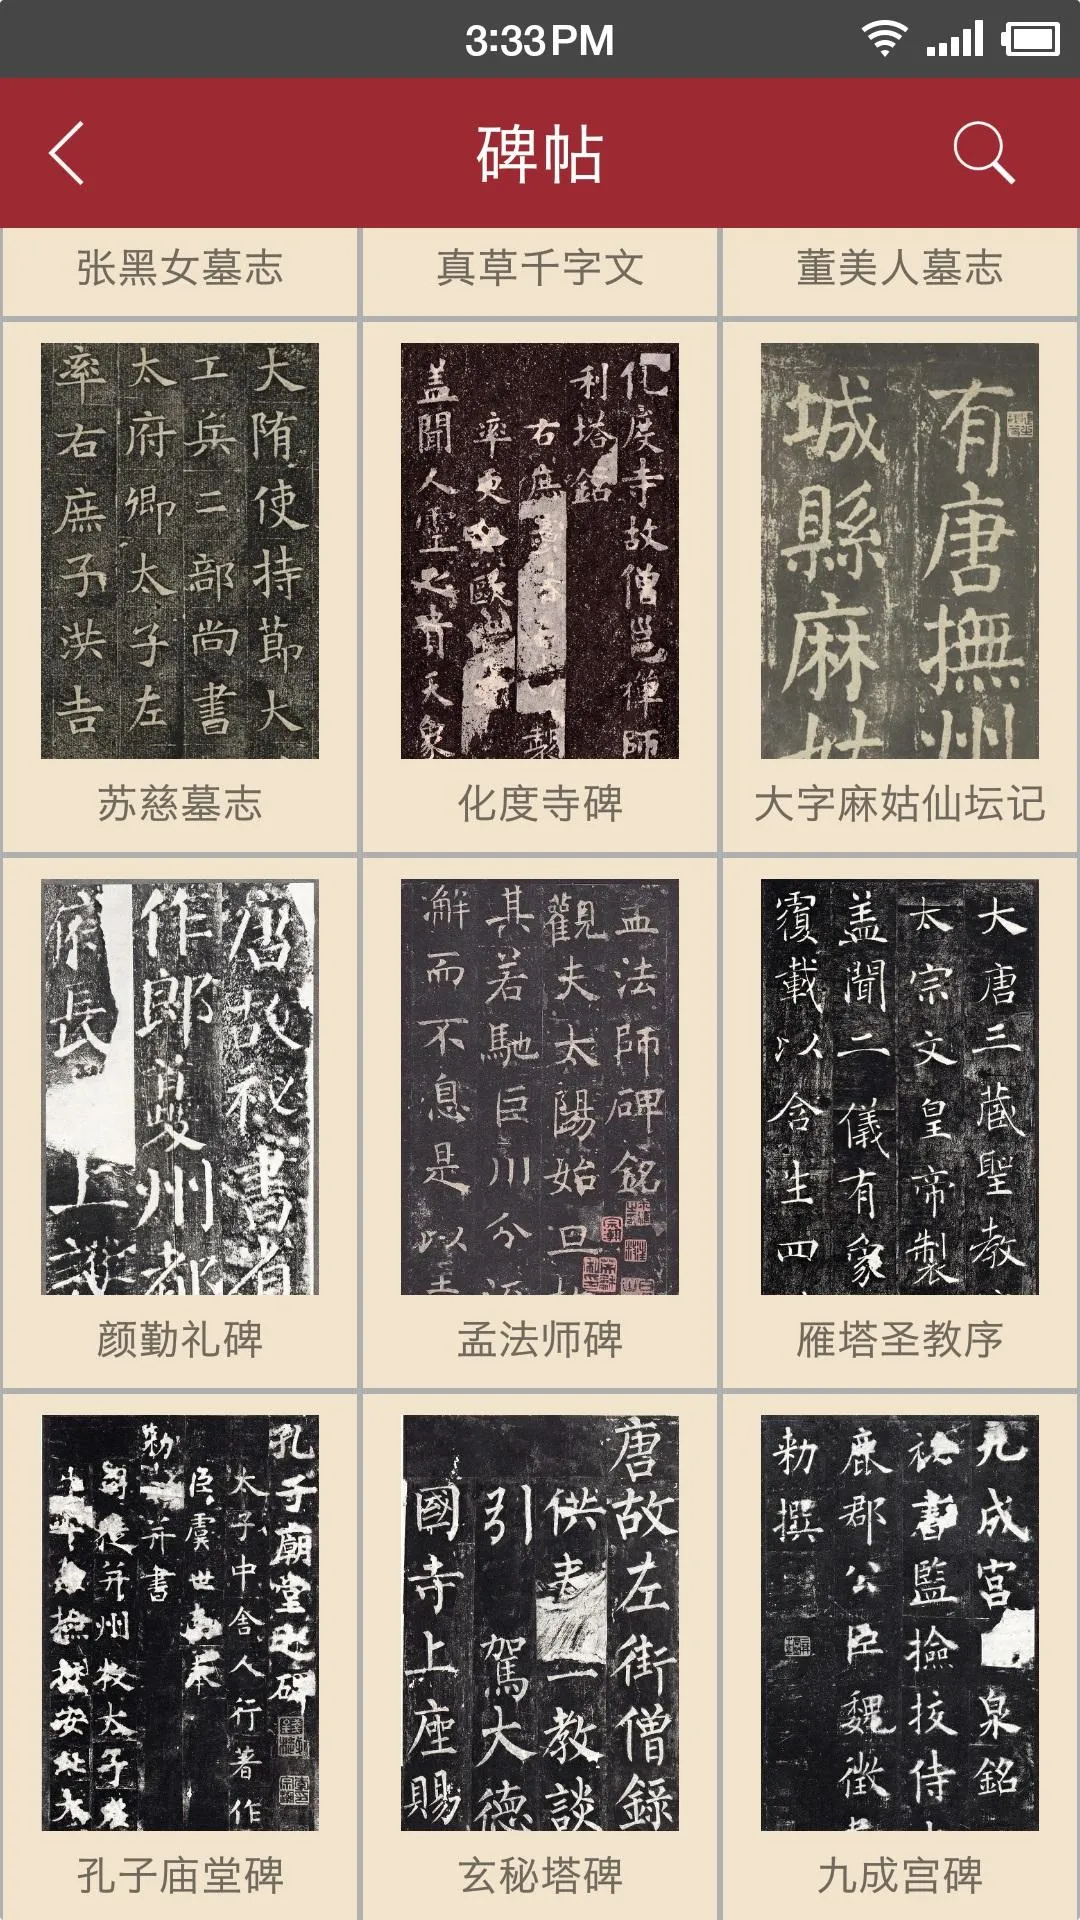 3:33PM
碑帖
张黑女墓志
真草千字文
董美人墓志
大隋使持節大
工兵二部尚書
太府卿太子左
率右庶子洪吉
化度寺故僧邕禅師
利塔銘
右庶
率更
盖聞人靈之貴天象
有唐撫州
城縣麻姑
苏慈墓志
化度寺碑
大字麻姑仙坛记
唐故祕書省
作郎夔州都
府長上護
孟法師碑銘
觀夫太陽始旦
其若馳巨川分
澥而不息是以
大唐三藏聖教
太宗文皇帝製
盖聞二儀有象
覆載以含生四
颜勤礼碑
孟法师碑
雁塔圣教序
孔子廟堂之碑
太子中舍人行著作
臣虞世南奉
勑并書
司徒并州牧太子左
撫校安北大
唐故左街僧録
供奉一教談
引駕大德
國寺上座賜
九成宫泉銘
祕書監撿挍侍
鹿郡公臣魏徵
勑撰
孔子庙堂碑
玄秘塔碑
九成宫碑